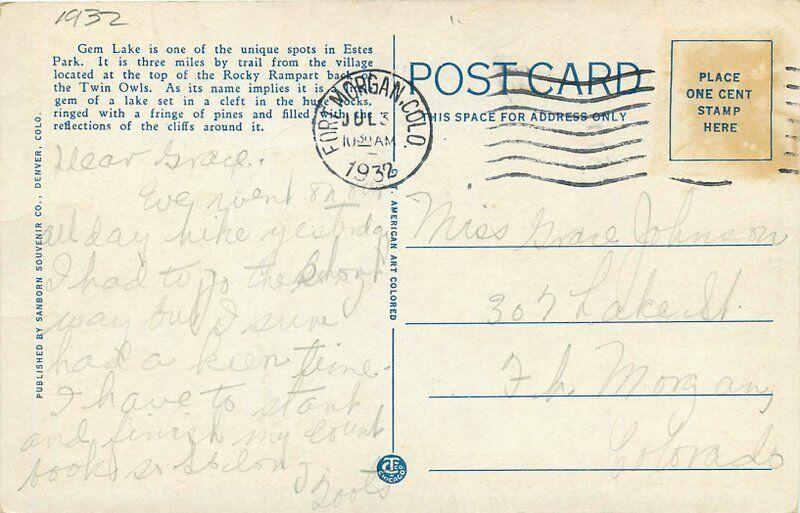 1932
Gem Lake is one of the unique spots in Estes
Park. It is three miles by trail from the village
located at the top of the Rocky Rampart back of
the Twin Owls. As its name implies it is a
gem of a lake set in a cleft in the huge rocks,
ringed with a fringe of pines and filled with
reflections of the cliffs around it.
POST CARD
THIS SPACE FOR ADDRESS ONLY
PLACE
ONE CENT
STAMP
HERE
FORT MORGAN, COLO.
JUL 3
10 30 AM
1932
PUBLISHED BY SANBORN SOUVENIR CO., DENVER, COLO.
AMERICAN ART COLORED
CHICAGO
Dear Grace.
We went on our
all day hike yesterday
I had to go the short
way but I sure
had a keen time.
I have to start
and finish my count
books so so long
Toots
Miss Grace Johnson
307 Lake St.
Ft. Morgan,
Colorado